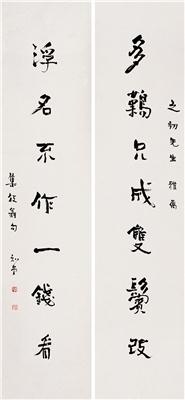 之初先生 雅屬
多難只成雙鬢改
浮名不作一錢看
集放翁句